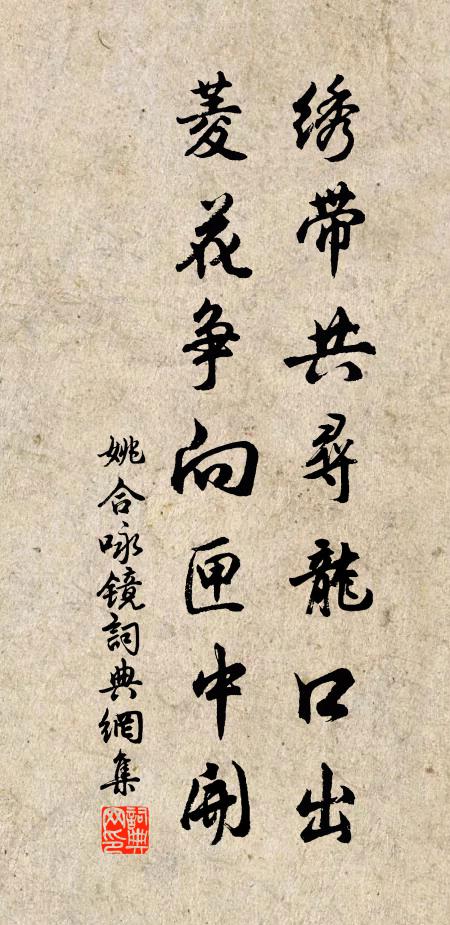 绣带共尋龍口出
菱花争向匣中開
姚合咏鏡詞典網集
詞典網印